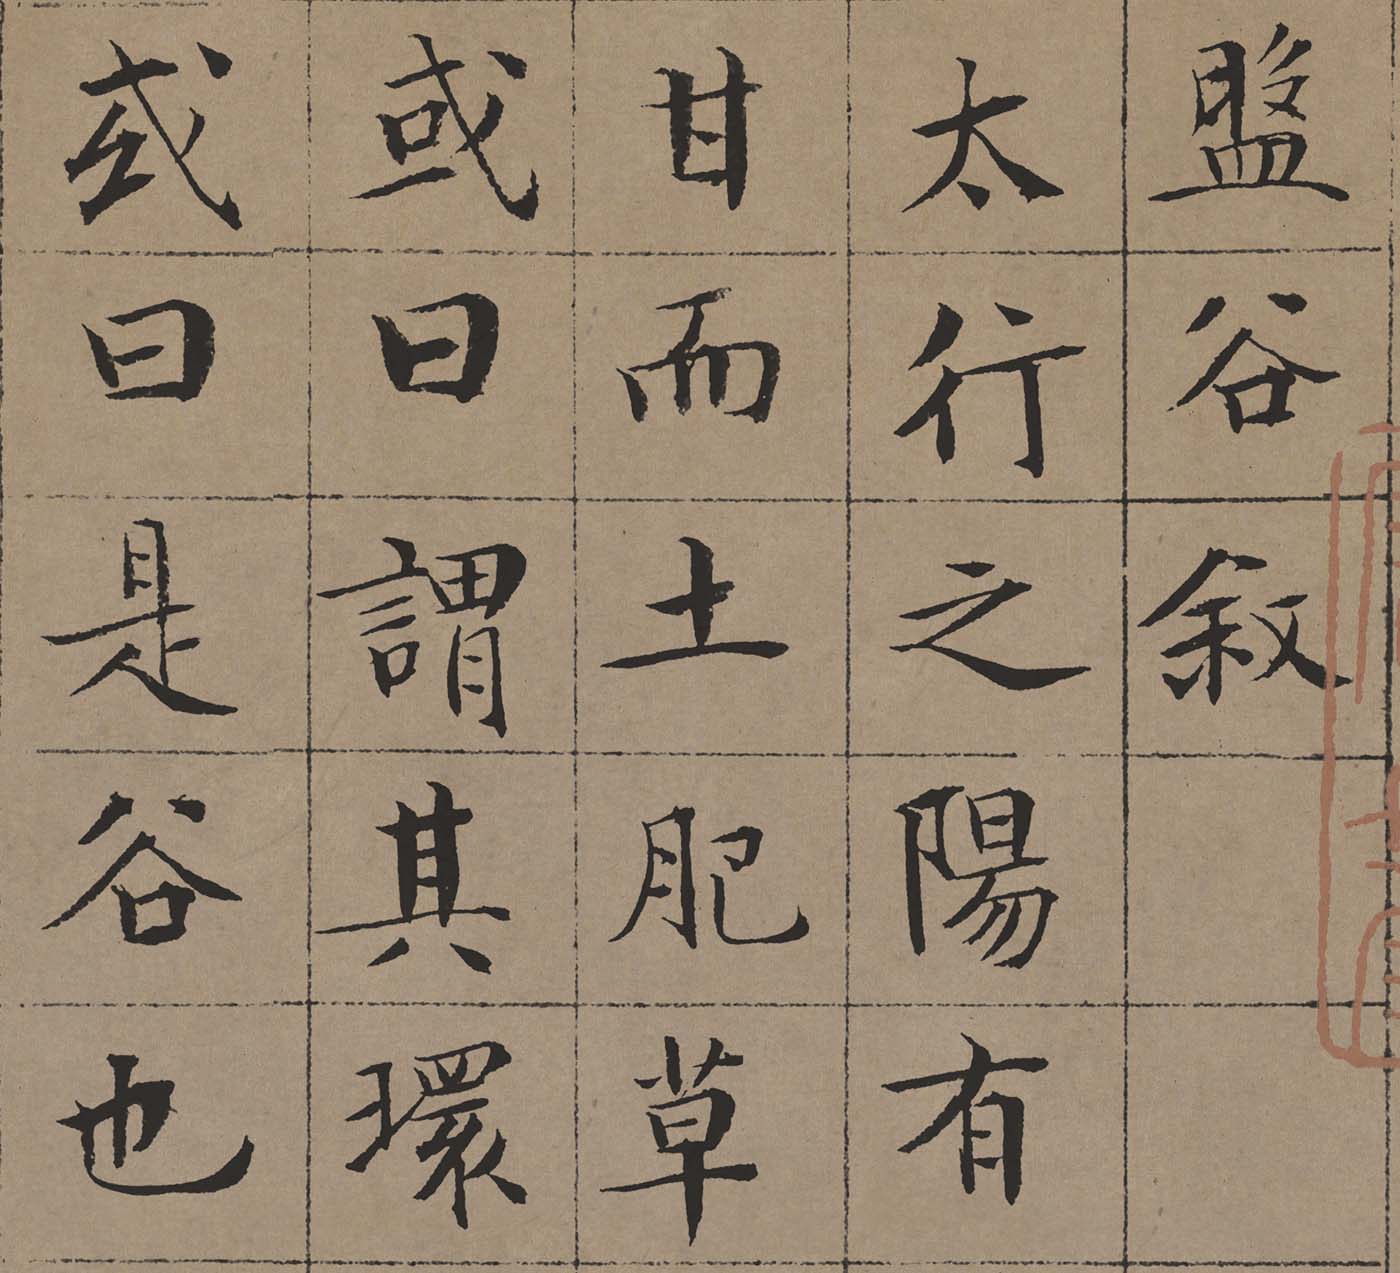 盤谷敘
太行之陽有
甘而土肥草
或曰謂其環
或曰是谷也